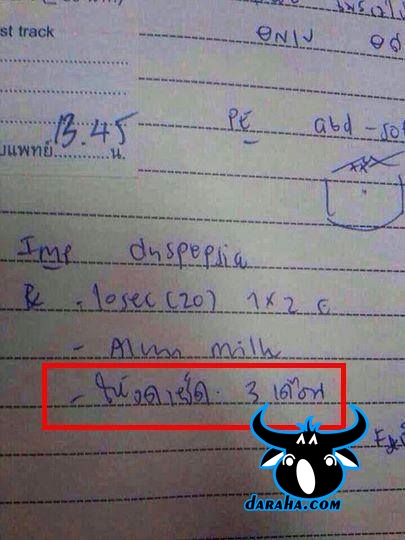 st track
13.45
บแพทย์............น.
PE abd - sof
Imp dyspepsia
Rx - losec (20) 1x2 c
- Alum milk
- ให้งดเย็ด. 3 เดือน
daraha.com